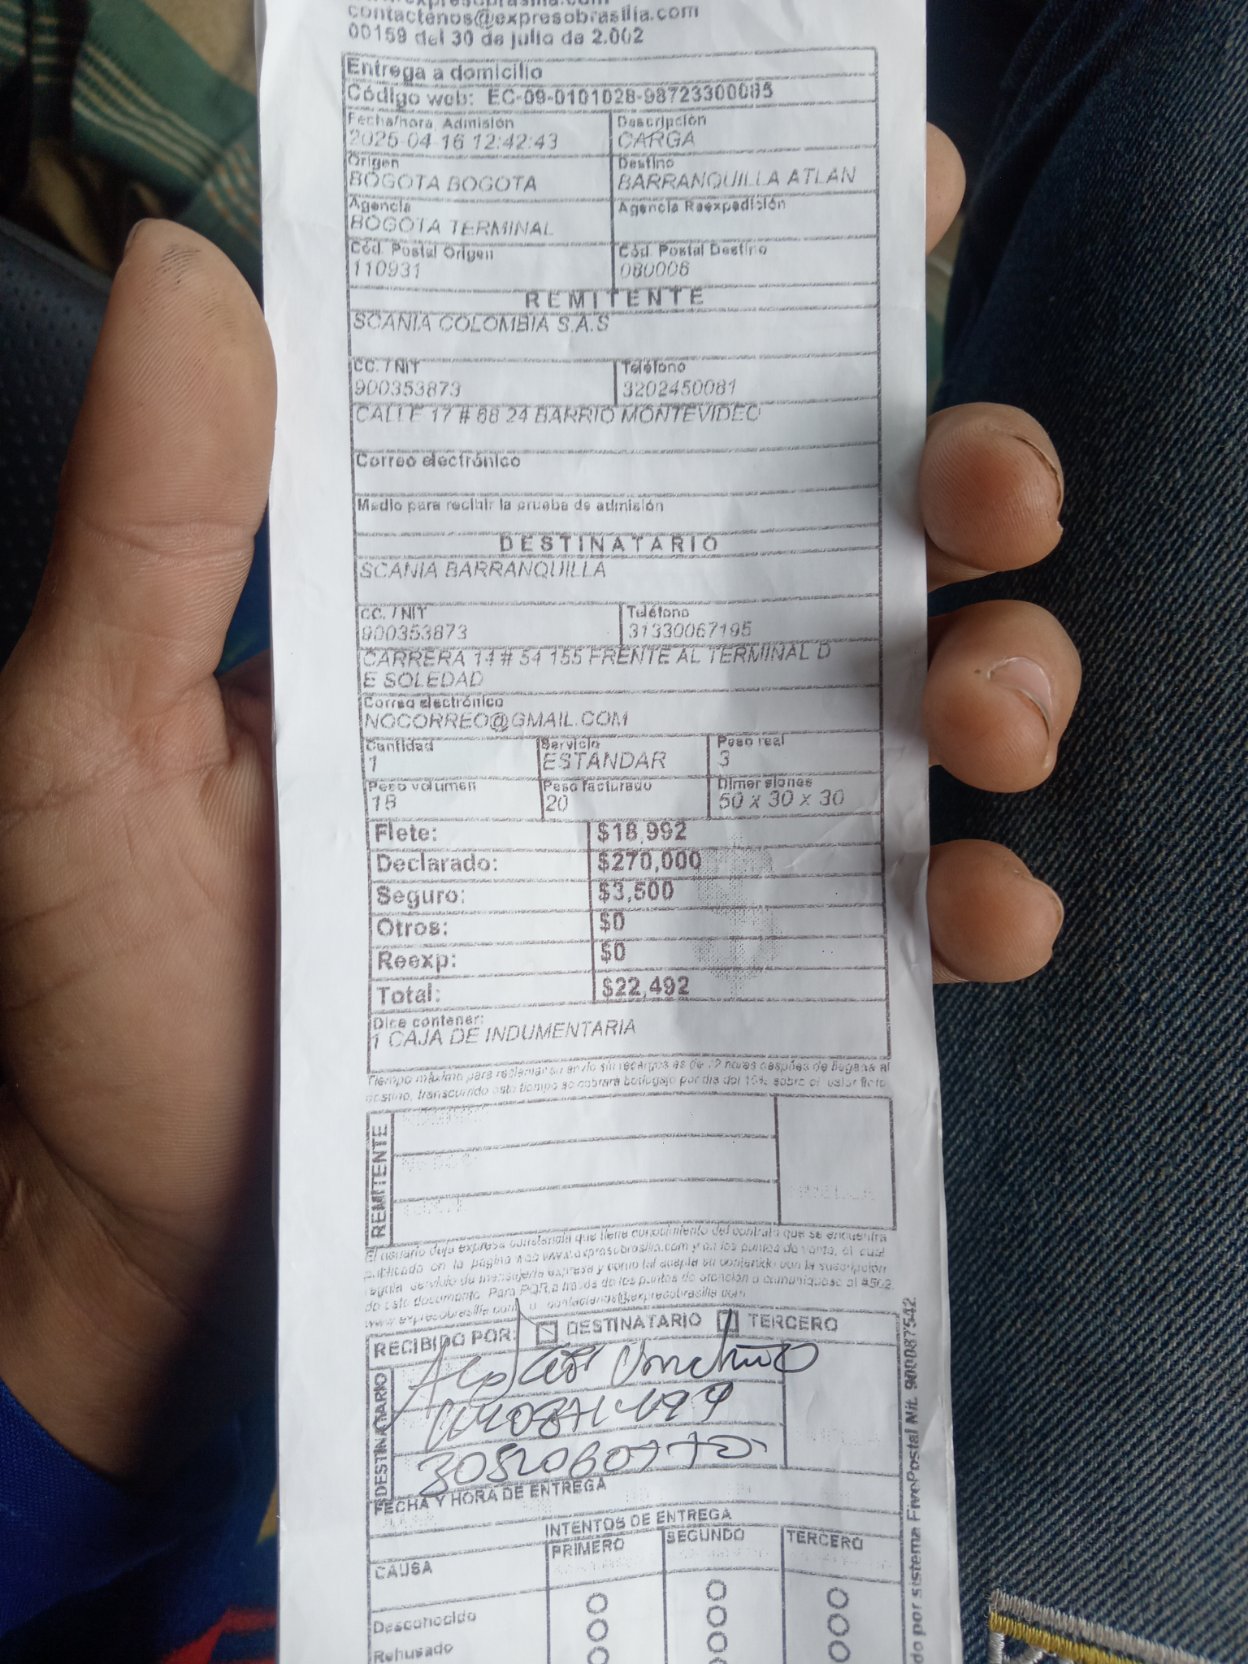 contactenos@expresobrasilia.com
00159 del 30 de julio de 2.002
Entrega a domicilio
Código web: EC-09-0101028-98723300085
Fecha/hora Admisión Descripción
2025-04-16 12:42:43 CARGA
Origen Destino
BOGOTA BOGOTA BARRANQUILLA ATLAN
Agencia Agencia Reexpedición
BOGOTA TERMINAL
Cód. Postal Origen Cód. Postal Destino
110931 080006
REMITENTE
SCANIA COLOMBIA S.A.S
CC. / NIT Teléfono
900353873 3202450081
CALLE 17 # 68 24 BARRIO MONTEVIDEO
Correo electrónico
Medio para recibir la prueba de admisión
DESTINATARIO
SCANIA BARRANQUILLA
CC. / NIT Teléfono
900353873 31330067195
CARRERA 14 # 54 155 FRENTE AL TERMINAL D
E SOLEDAD
Correo electrónico
NOCORREO@GMAIL.COM
Cantidad Servicio Peso real
1 ESTANDAR 3
Peso volumen Peso facturado Dimensiones
18 20 50 x 30 x 30
Flete: $18,992
Declarado: $270,000
Seguro: $3,500
Otros: $0
Reexp: $0
Total: $22,492
Dice contener:
1 CAJA DE INDUMENTARIA
Tiempo máximo para reclamar su envío sin recargos es de 72 horas después de llegada al
destino, transcurrido este tiempo se cobrará bodegaje por día del 15% sobre el valor flete
REMITENTE
El usuario deja expresa constancia que tiene conocimiento del contrato que se encuentra
publicado en la página web www.expresobrasilia.com y en los puntos de venta, el cual
regula servicio de mensajería expresa y como tal acepta su contenido con la suscripción
de este documento. Para PQR a través de los puntos de atención o comuníquese al #502
www.expresobrasilia.com o contactenos@expresobrasilia.com
RECIBIDO POR: DESTINATARIO TERCERO
DESTINATARIO
FECHA Y HORA DE ENTREGA
INTENTOS DE ENTREGA
CAUSA PRIMERO SEGUNDO TERCERO
Desconocido
Rehusado
do por sistema FivePostal Nit. 900087542